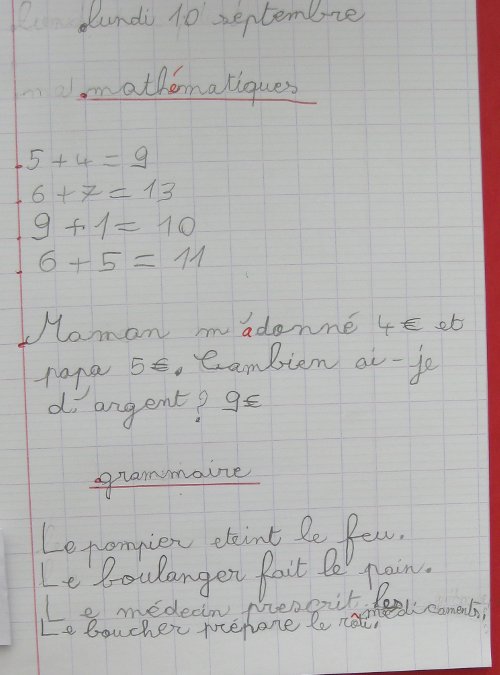 lundi 10 septembre
mathématiques
5 + 4 = 9
6 + 7 = 13
9 + 1 = 10
6 + 5 = 11
Maman m'a donné 4 € et
papa 5 €. Cambien ai-je
d'argent? 9€
grammaire
Le pompier eteint le feu.
Le boulanger fait le pain.
Le médecin prescrit les médicaments.
Le boucher prépare le rôti.